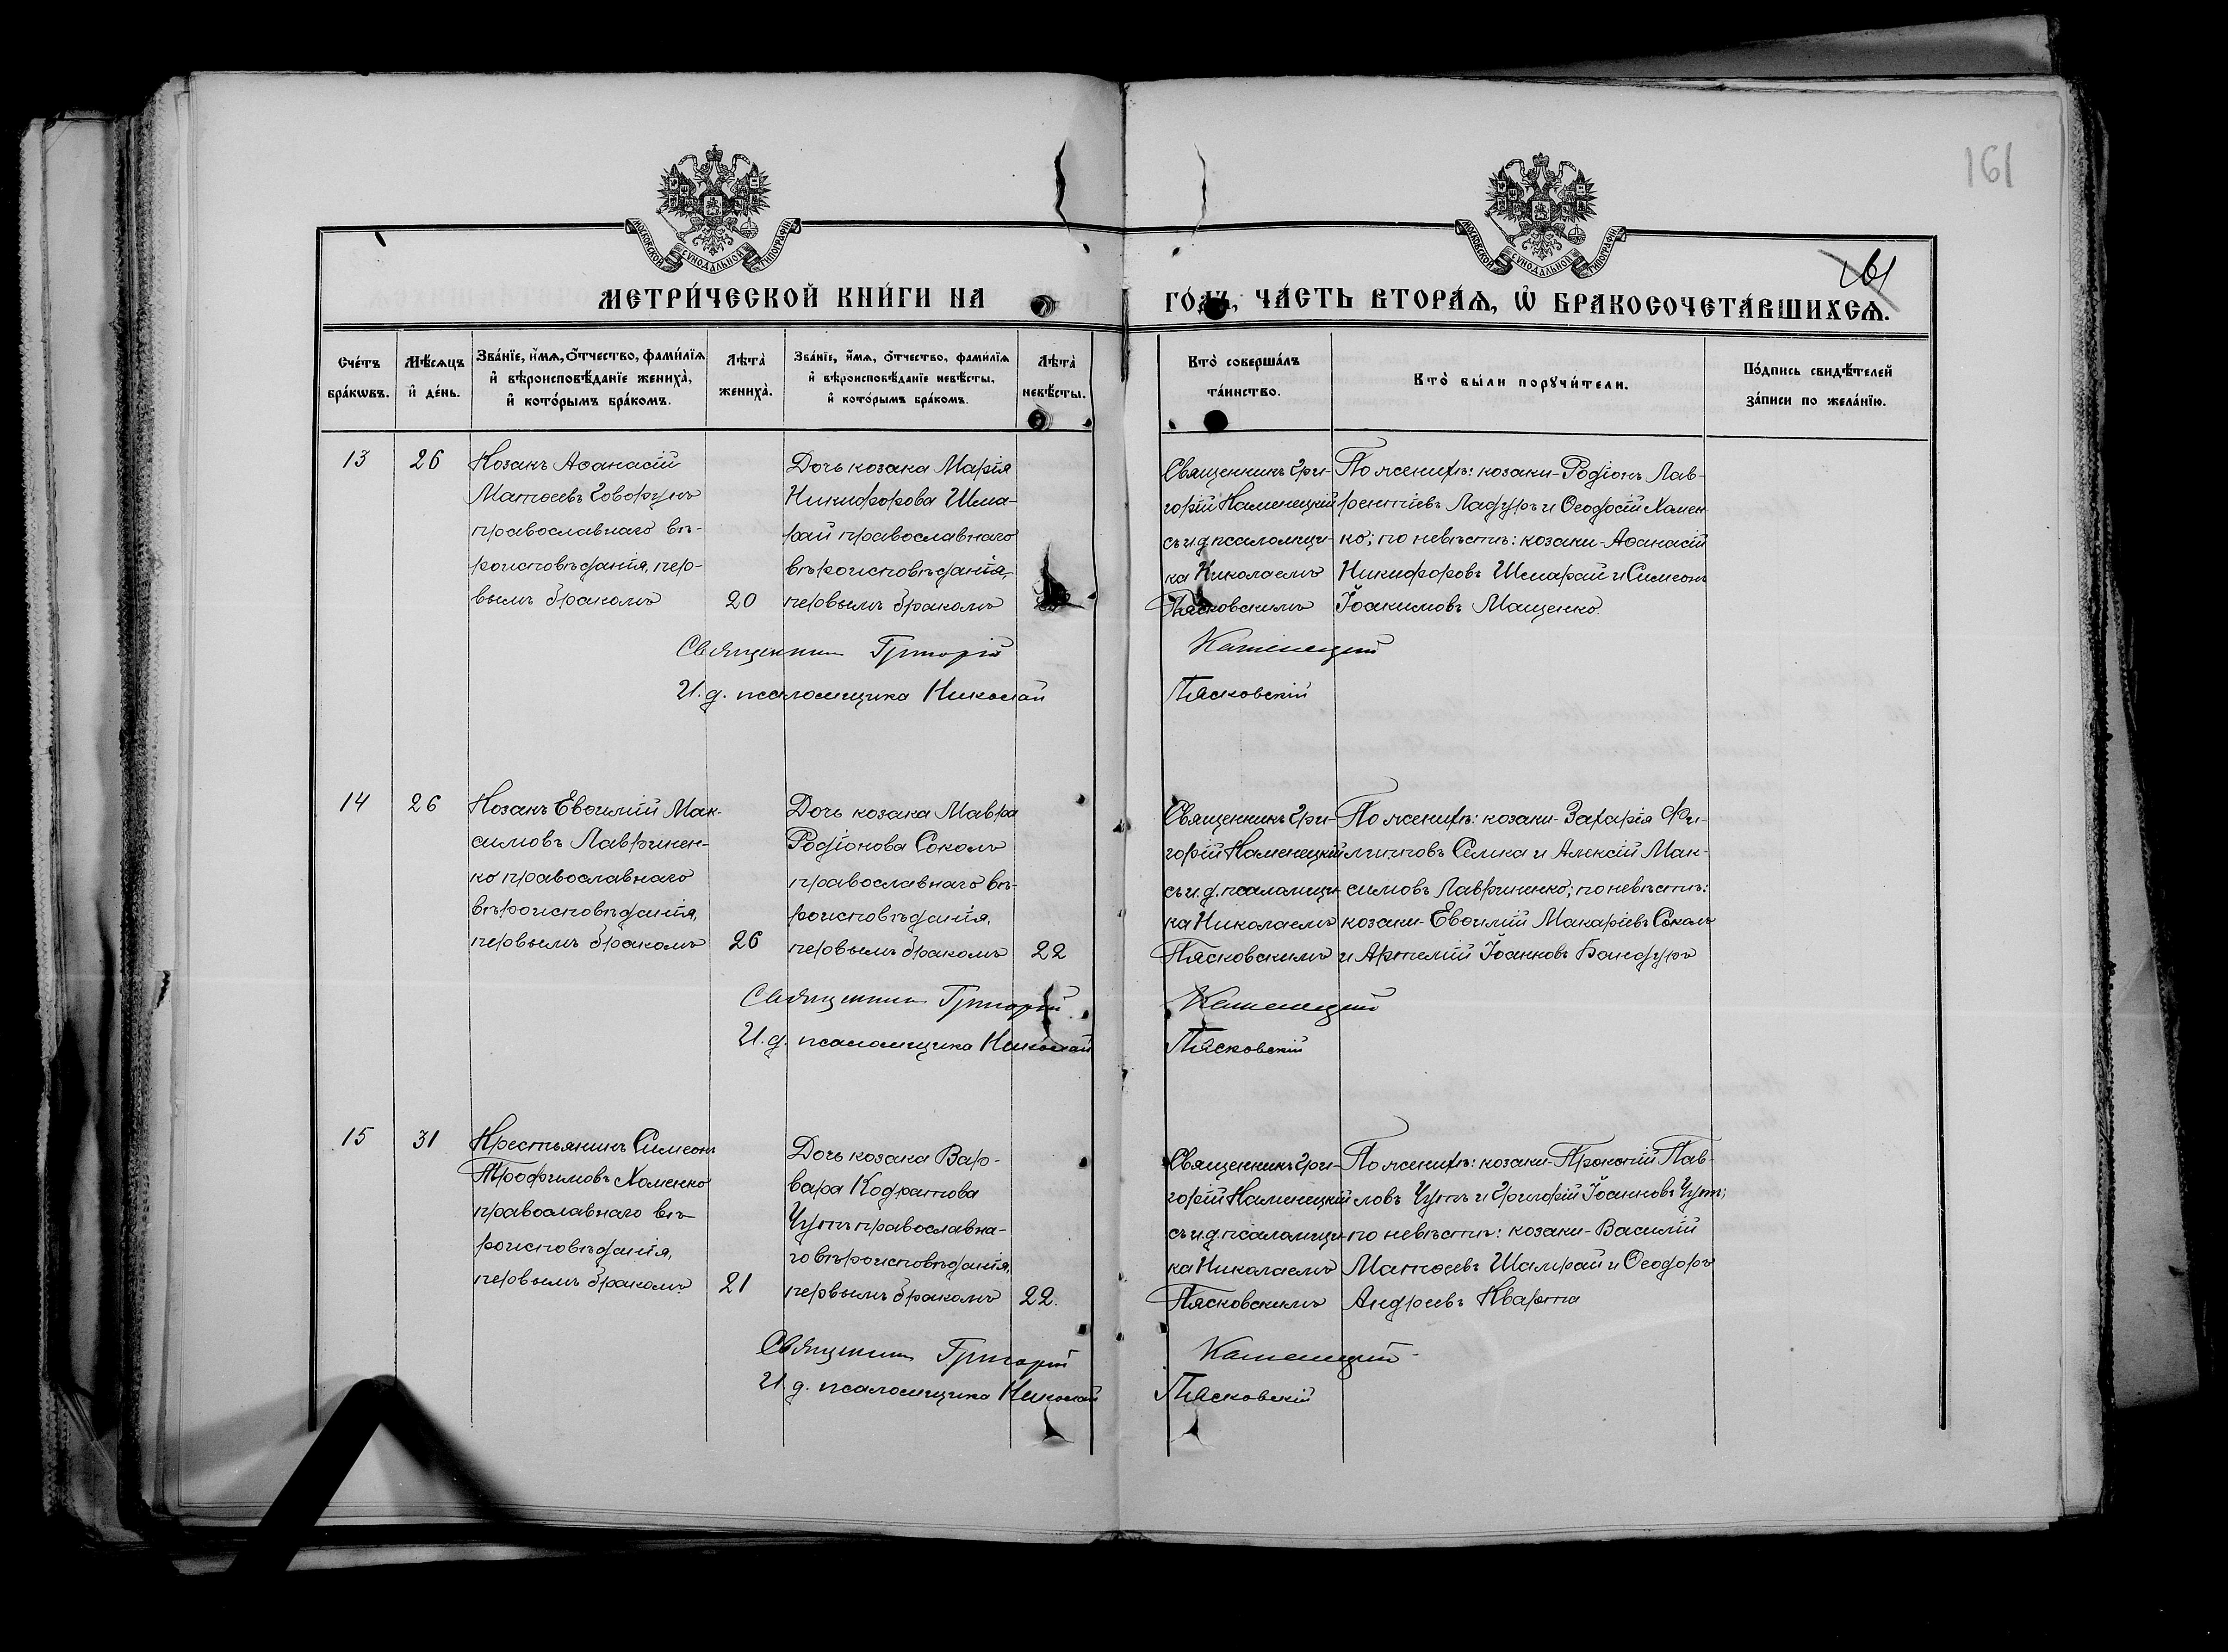 161
161
МОСКОВСКОЙ СѴНОДАЛЬНОЙ ТИПОГРАФІИ
МОСКОВСКОЙ СѴНОДАЛЬНОЙ ТИПОГРАФІИ
МЕТРИ́ЧЕСКОЙ КНИ́ГИ НА
ГО́ДЪ, ЧА́СТЬ ВТОРА́Ѧ, Ѽ БРАКОСОЧЕТА́ВШИХСѦ.
Сче́тъ бра́кѡвъ.
Мѣ́сѧцъ и҆ де́нь.
Зва́нїе, и҆́мѧ, ѻ҆́тчество, фами́лїѧ и҆ вѣроисповѣ́данїе жениха̀, и҆ кото́рымъ бра́комъ.
Лѣта̀ жениха̀.
Зва́нїе, и҆́мѧ, ѻ҆́тчество, фами́лїѧ и҆ вѣроисповѣ́данїе невѣ́сты, и҆ кото́рымъ бра́комъ.
Лѣта̀ невѣ́сты.
Кто̀ соверша́лъ та́инство.
Кто̀ бы́ли порꙋчи́тели.
По́дпись свидѣ́телей за́писи по жела́нїю.
13
26
Козакъ Аѳанасій
Матѳеевъ Говорунъ
православнаго вѣ-
роисповѣданія, пер-
вымъ бракомъ
20
Дочь козака Марія
Никифорова Шма-
рай православнаго
вѣроисповѣданія,
первымъ бракомъ
Священникъ Гри-
горій Каменецкій
съ и.д. псаломщи-
ка Николаемъ
Пясковскимъ
По женихѣ: козаки-Родіонъ Лав-
рентіевъ Ладуръ и Ѳеодосій Хомен
ко; по невѣстѣ: козаки-Аѳанасій
Никифоровъ Шмарай и Симеонъ
Іоакимовъ Мащенко.
Священникъ Григорій Каменецкій
И.д. псаломщика Николай Пясковскій
14
26
Козакъ Евѳимій Мак-
симовъ Лавринен-
ко православнаго
вѣроисповѣданія,
первымъ бракомъ
26
Дочь козака Мавра
Родіонова Соколъ
православнаго вѣ-
роисповѣданія,
первымъ бракомъ
22
Священникъ Гри-
горій Каменецкій
съ и.д. псаломщи-
ка Николаемъ
Пясковскимъ
По женихѣ: козаки-Захарія Фи-
липповъ Семка и Алексій Мак-
симовъ Лавриненко; по невѣстѣ:
козаки-Евѳимій Макаріевъ Соколъ
и Артемій Іоанновъ Бандуръ
Священникъ Григорій Каменецкій
И.д. псаломщика Николай Пясковскій
15
31
Крестьянинъ Симеонъ
Трофимовъ Хоменко
православнаго вѣ-
роисповѣданія,
первымъ бракомъ
21
Дочь козака Вар-
вара Кодратова
Чутъ православна-
го вѣроисповѣданія,
первымъ бракомъ
22.
Священникъ Гри-
горій Каменецкій
съ и.д. псаломщи-
ка Николаемъ
Пясковскимъ
По женихѣ: козаки-Прокопій Пав-
ловъ Чутъ и Григорій Іоанновъ Чутъ;
по невѣстѣ: козаки-Василій
Матѳеевъ Шамрай и Ѳеодоръ
Андреевъ Кварта
Священникъ Григорій Каменецкій
И.д. псаломщика Николай Пясковскій